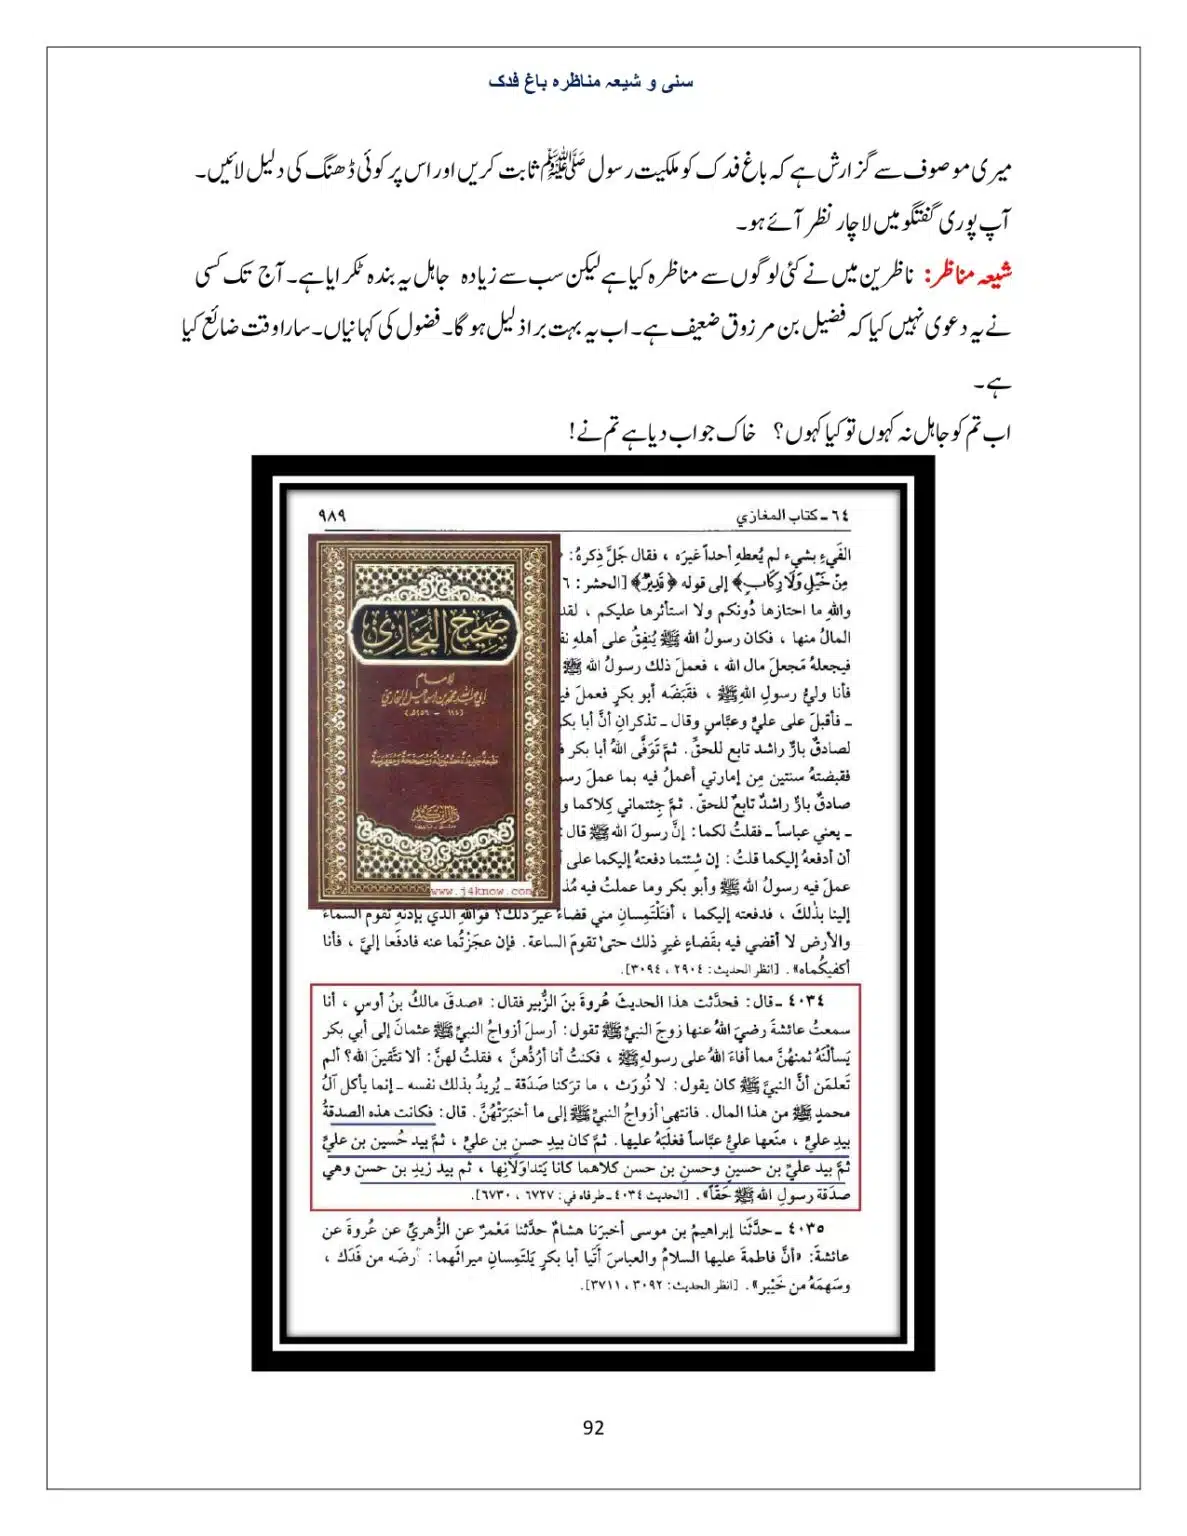 سنی و شیعہ مناظرہ باغ فدک
میری موصوف سے گزارش ہے کہ باغ فدک کو ملکیت رسول ﷺ ثابت کریں اور اس پر کوئی ڈھنگ کی دلیل لائیں۔
آپ پوری گفتگو میں لاچار نظر آئے ہو۔
شیعہ مناظر: ناظرین میں نے کئی لوگوں سے مناظرہ کیا ہے لیکن سب سے زیادہ جاہل یہ بندہ ٹکرایا ہے۔ آج تک کسی
نے یہ دعوی نہیں کیا کہ فضیل بن مرزوق ضعیف ہے۔ اب یہ بہت برا ذلیل ہو گا۔ فضول کی کہانیاں۔ سارا وقت ضائع کیا
ہے۔
اب تم کو جاہل نہ کہوں تو کیا کہوں؟ خاک جواب دیا ہے تم نے!
٦٤ ـ كتاب المغازي ٩٨٩
الفَيءِ بشيء لم يُعطهِ أحداً غيرَه ، فقال جَلَّ ذِكرهُ:
مِنْ خَيْلٍ وَلَا رِكَابٍ﴾ إلى قوله ﴿قَدِيرٌ﴾ [الحشر: ٦
واللهِ ما احتازها دُونكم ولا استأثرها عليكم ، لقد
المالُ منها ، فكان رسولُ الله ﷺ يُنفِقُ على أهلهِ
فيجعلهُ مَجعلَ مال الله ، فعملَ ذلك رسولُ الله ﷺ
فأنا وليُّ رسولِ اللهِ ﷺ ، فقَبَضَه أبو بكرٍ فعملَ
ـ فأقبلَ على عليٍّ وعبّاسٍ وقال ـ تذكرانِ أنَّ أبا بكر
لصادقٌ بارٌّ راشد تابع للحقِّ. ثمَّ تَوَفَّى اللهُ أبا بكر
فقبضتهُ سنتين مِن إمارتي أعملُ فيه بما عملَ
صادقٌ بارٌّ راشدٌ تابعٌ للحقّ. ثمَّ جِئتماني كِلاكما
ـ يعني عباساً ـ فقلتُ لكما: إنَّ رسولَ الله ﷺ قال:
أن أدفعهُ إليكما قلتُ: إن شِئتما دفعتهُ إليكما على
عملَ فيه رسولُ الله ﷺ وأبو بكر وما عملتُ فيه
إلينا بذٰلكَ ، فدفعته إليكما ، أفتَلْتَمِسانِ مني قضاءً غيرَ ذلك؟ فواللهِ الذي بإذنهِ تقومُ السماءُ
والأرضُ لا أقضي فيه بقَضاءٍ غيرِ ذلك حتىٰ تقومَ الساعة. فإن عجَزْتُما عنه فادفَعا إليَّ ، فأنا
أكفيكُماه». [انظر الحديث: ٢٩٠٤ ، ٣٠٩٤].
٤٠٣٤ ـ قال: فحدَّثت هذا الحديثَ عُروةَ بنَ الزُّبير فقال: «صدقَ مالكُ بنُ أوسٍ ، أنا
سمعتُ عائشةَ رضيَ اللهُ عنها زوجَ النبيِّ ﷺ تقول: أرسلَ أزواجُ النبيِّ ﷺ عثمانَ إلى أبي بكر
يَسألْنَهُ ثمنهُنَّ مما أفاءَ اللهُ على رسولهِ ﷺ ، فكنتُ أنا أرُدُّهنَّ ، فقلتُ لهنَّ: ألا تتَّقينَ الله؟ ألم
تَعلمْن أنَّ النبيَّ ﷺ كان يقول: لا نُورَث ، ما ترَكنا صَدَقة ـ يُريدُ بذلك نفسه ـ إنما يأكل آلُ
محمدٍ ﷺ من هذا المال. فانتهىٰ أزواجُ النبيِّ ﷺ إلى ما أخبَرَتْهُنَّ. قال: فكانت هذه الصدقةُ
بيدِ عليٍّ ، منَعها عليٌّ عبّاساً فغلَبَهُ عليها. ثمَّ كان بيدِ حسنِ بن عليٍّ ، ثمَّ بيد حُسين بن عليٍّ
ثمَّ بيد عليِّ بن حسينٍ وحسنِ بن حسن كلاهما كانا يَتداوَلانِها ، ثم بيد زيدِ بن حسن وهي
صدَقة رسولِ الله ﷺ حَقّاً». [الحديث ٤٠٣٤ ـ طرفاه في: ٦٧٢٧ ، ٦٧٣٠].
٤٠٣٥ ـ حدَّثَنا إبراهيمُ بن موسى أخبرَنا هشامٌ حدَّثنا مَعْمرٌ عن الزُّهريِّ عن عُروةَ عن
عائشة: «أنَّ فاطمةَ عليها السلامُ والعباسَ أتَيا أبا بكرٍ يَلتَمِسانِ ميراثَهما: أرضَه من فَدَك ،
وسَهمَهُ من خَيْبر». [انظر الحديث: ٣٠٩٢ ، ٣٧١١].
صحيح البخاري
للإمام
أبي عبد الله محمد بن إسماعيل البخاري
دار ابن كثير
www.j4know.com
92